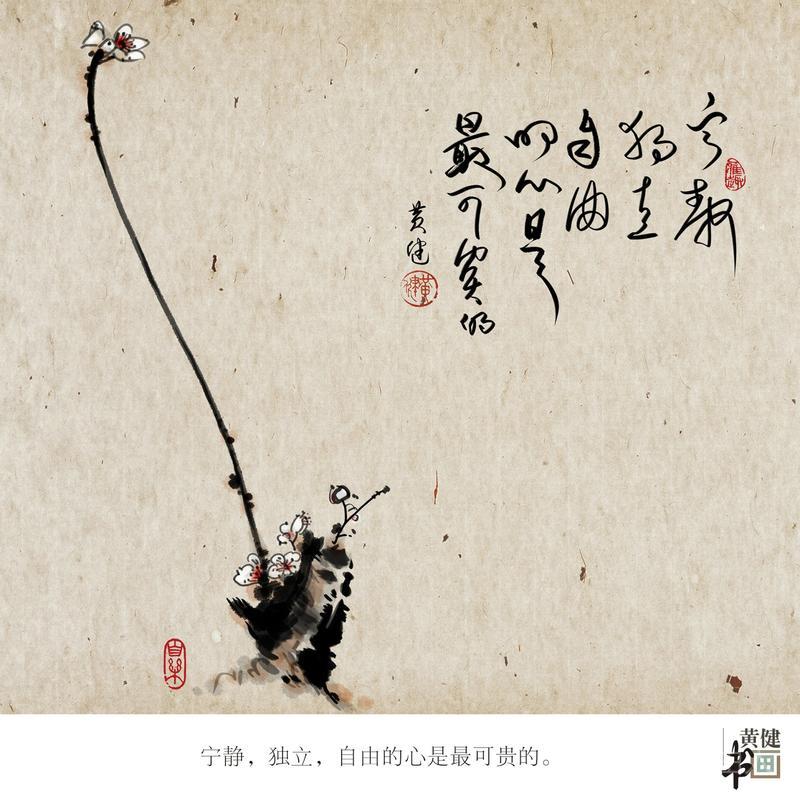 宁静
独立
自由
的心是
最可贵的
黄健
黄健
宁静，独立，自由的心是最可贵的。
黄健
书画